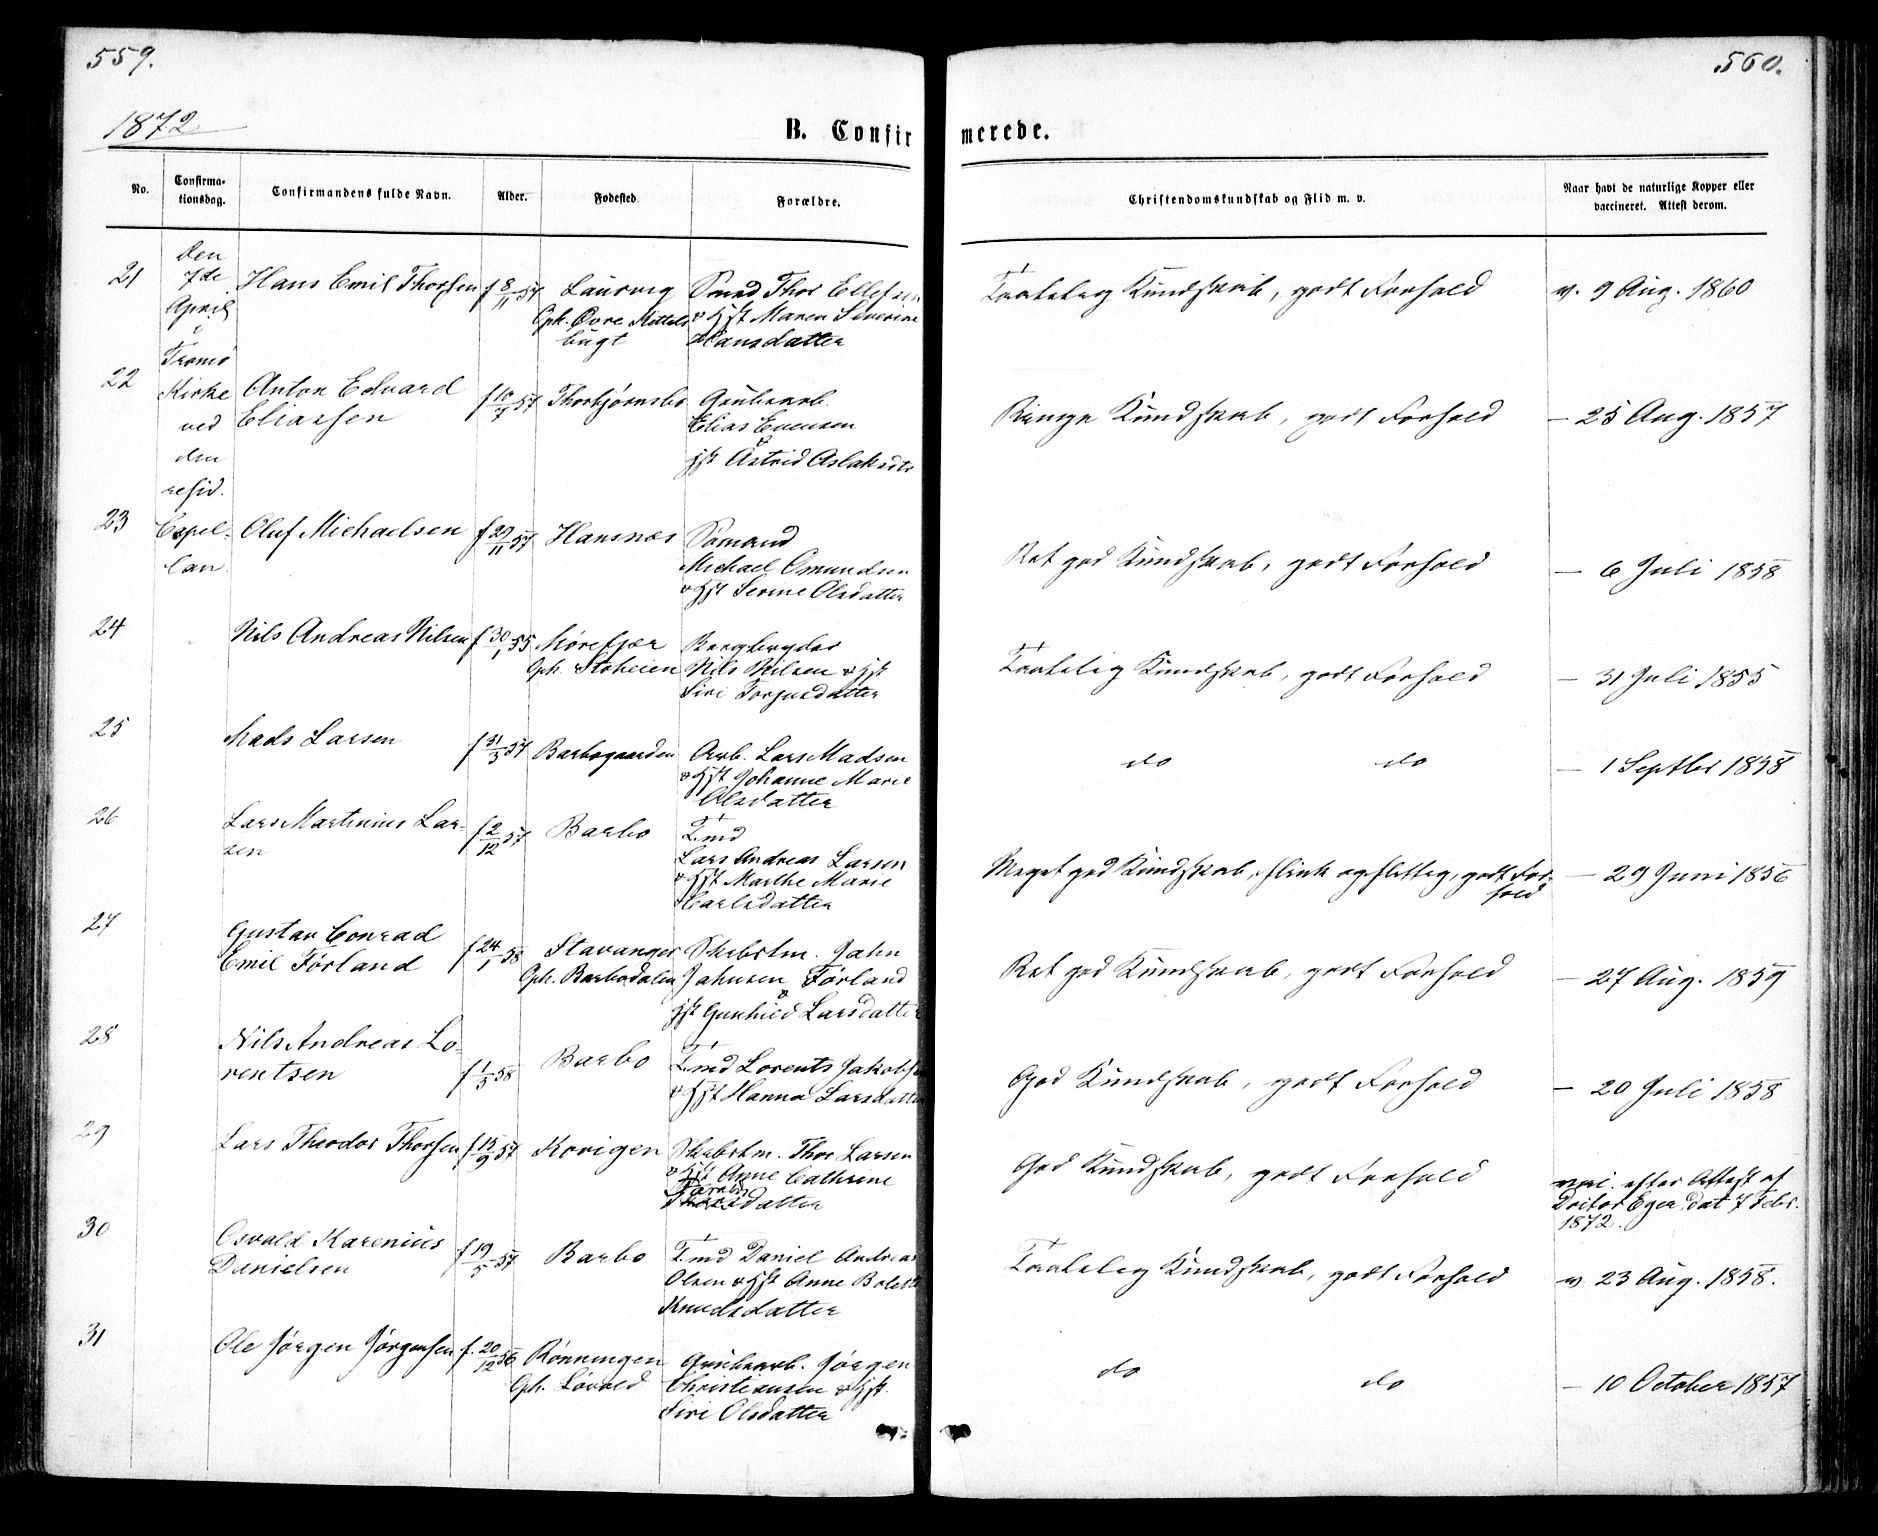 559.
560.
1872
B. Confirmerede.
No.
Confirma-
tionsdag.
Confirmandens fulde Navn.
Alder.
Fødested.
Forældre.
Christendomskundskab og Flid m. v.
Naar havt de naturlige Kopper eller
vaccineret. Attest derom.
Den
7de
April
i
Tromø
Kirke
ved
den
resid.
Capel-
lan.
21 Hans Emil Thorsen f 8/11 57 Laurvig
Oph. Øvre Kittels
bugt
Sømd Thor Ellefsen
& Hst Maren Severine
Hansdatter
Taalelig Kundskab, godt Forhold
v. 9 Aug. 1860
22 Anton Edvard
Eliassen
f 10/7 57 Thorbjørnsbo
Grubearb.
Elias Evensen
&
Hst Astrid Aslaksdtr
Ringe Kundskab, godt Forhold
— 25 Aug. 1857
23 Oluf Michaelsen f 29/11 57 Hansnæs
Sømand
Michael Omundsen
& Hst Serine Olsdatter
Ret god Kundskab, godt Forhold
— 6 Juli 1858
24 Nils Andreas Nilsen f 30/1 55 Mørefjær
Oph. Stoheien
Bergbryder
Nils Nilsen & Hst
Siri Torjusdatter
Taalelig Kundskab, godt Forhold
— 31 Juli 1855
25 Mads Larsen f 31/3 57 Barbogaarden
Arb. Lars Madsen
& Hst Johanne Marie
Olsdatter
do do
— 1 Septbr 1858
26 Lars Martinius Lar-
sen
f 2/12 57 Barbo
Tmd
Lars Andreas Larsen
& Hst Marthe Marie
Carlsdatter
Meget god Kundskab, flink og flittig, godt For-
hold
— 29 Juni 1856
27 Gustav Conrad
Emil Førland
f 24/1 58 Stavanger
Oph. Barbodalen
Skibstm. John
Johnsen Førland
&
Hst Gunhild Larsdatter
Ret god Kundskab, godt Forhold
— 27 Aug. 1859
28 Nils Andreas Lo-
rentsen
f 1/3 58 Barbo
Tmd Lorents Jakobsen
& Hst Hanna Larsdatter
God Kundskab, godt Forhold
— 20 Juli 1858
29 Lars Theodor Thorsen f 15/9 57 Kovigen
Skibstm. Thor Larsen
& Hst Anne Cathrine
datter
God Kundskab, godt Forhold
vac. efter Attest af
Doctor Eger dat 7 Febr.
1872.
30 Osvald Karenius
Danielsen
f 19/5 57 Barbo
Tmd Daniel Andreas
Olsen & Hst Anne Bolette
Knudsdatter
Taalelig Kundskab, godt Forhold
v. 23 Aug. 1858.
31 Ole Jørgen Jørgensen f. 20/12 56 Rønningen
Oph. Løvold
Grubearb. Jørgen
Christiansen & Hst.
Siri Olsdatter
do do
— 10 October 1857